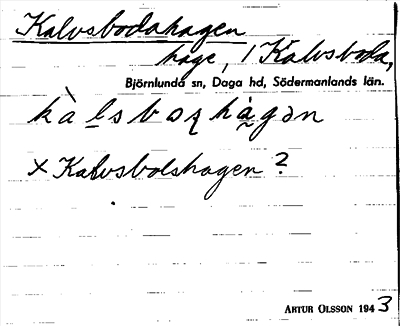 Kalvsbodahagen
hage, 1 Kalvsboda,
Björnlunda sn, Daga hd, Södermanlands län.
kàlsboʐhàgən
× Kalvsbolshagen?
ARTUR OLSSON 1943